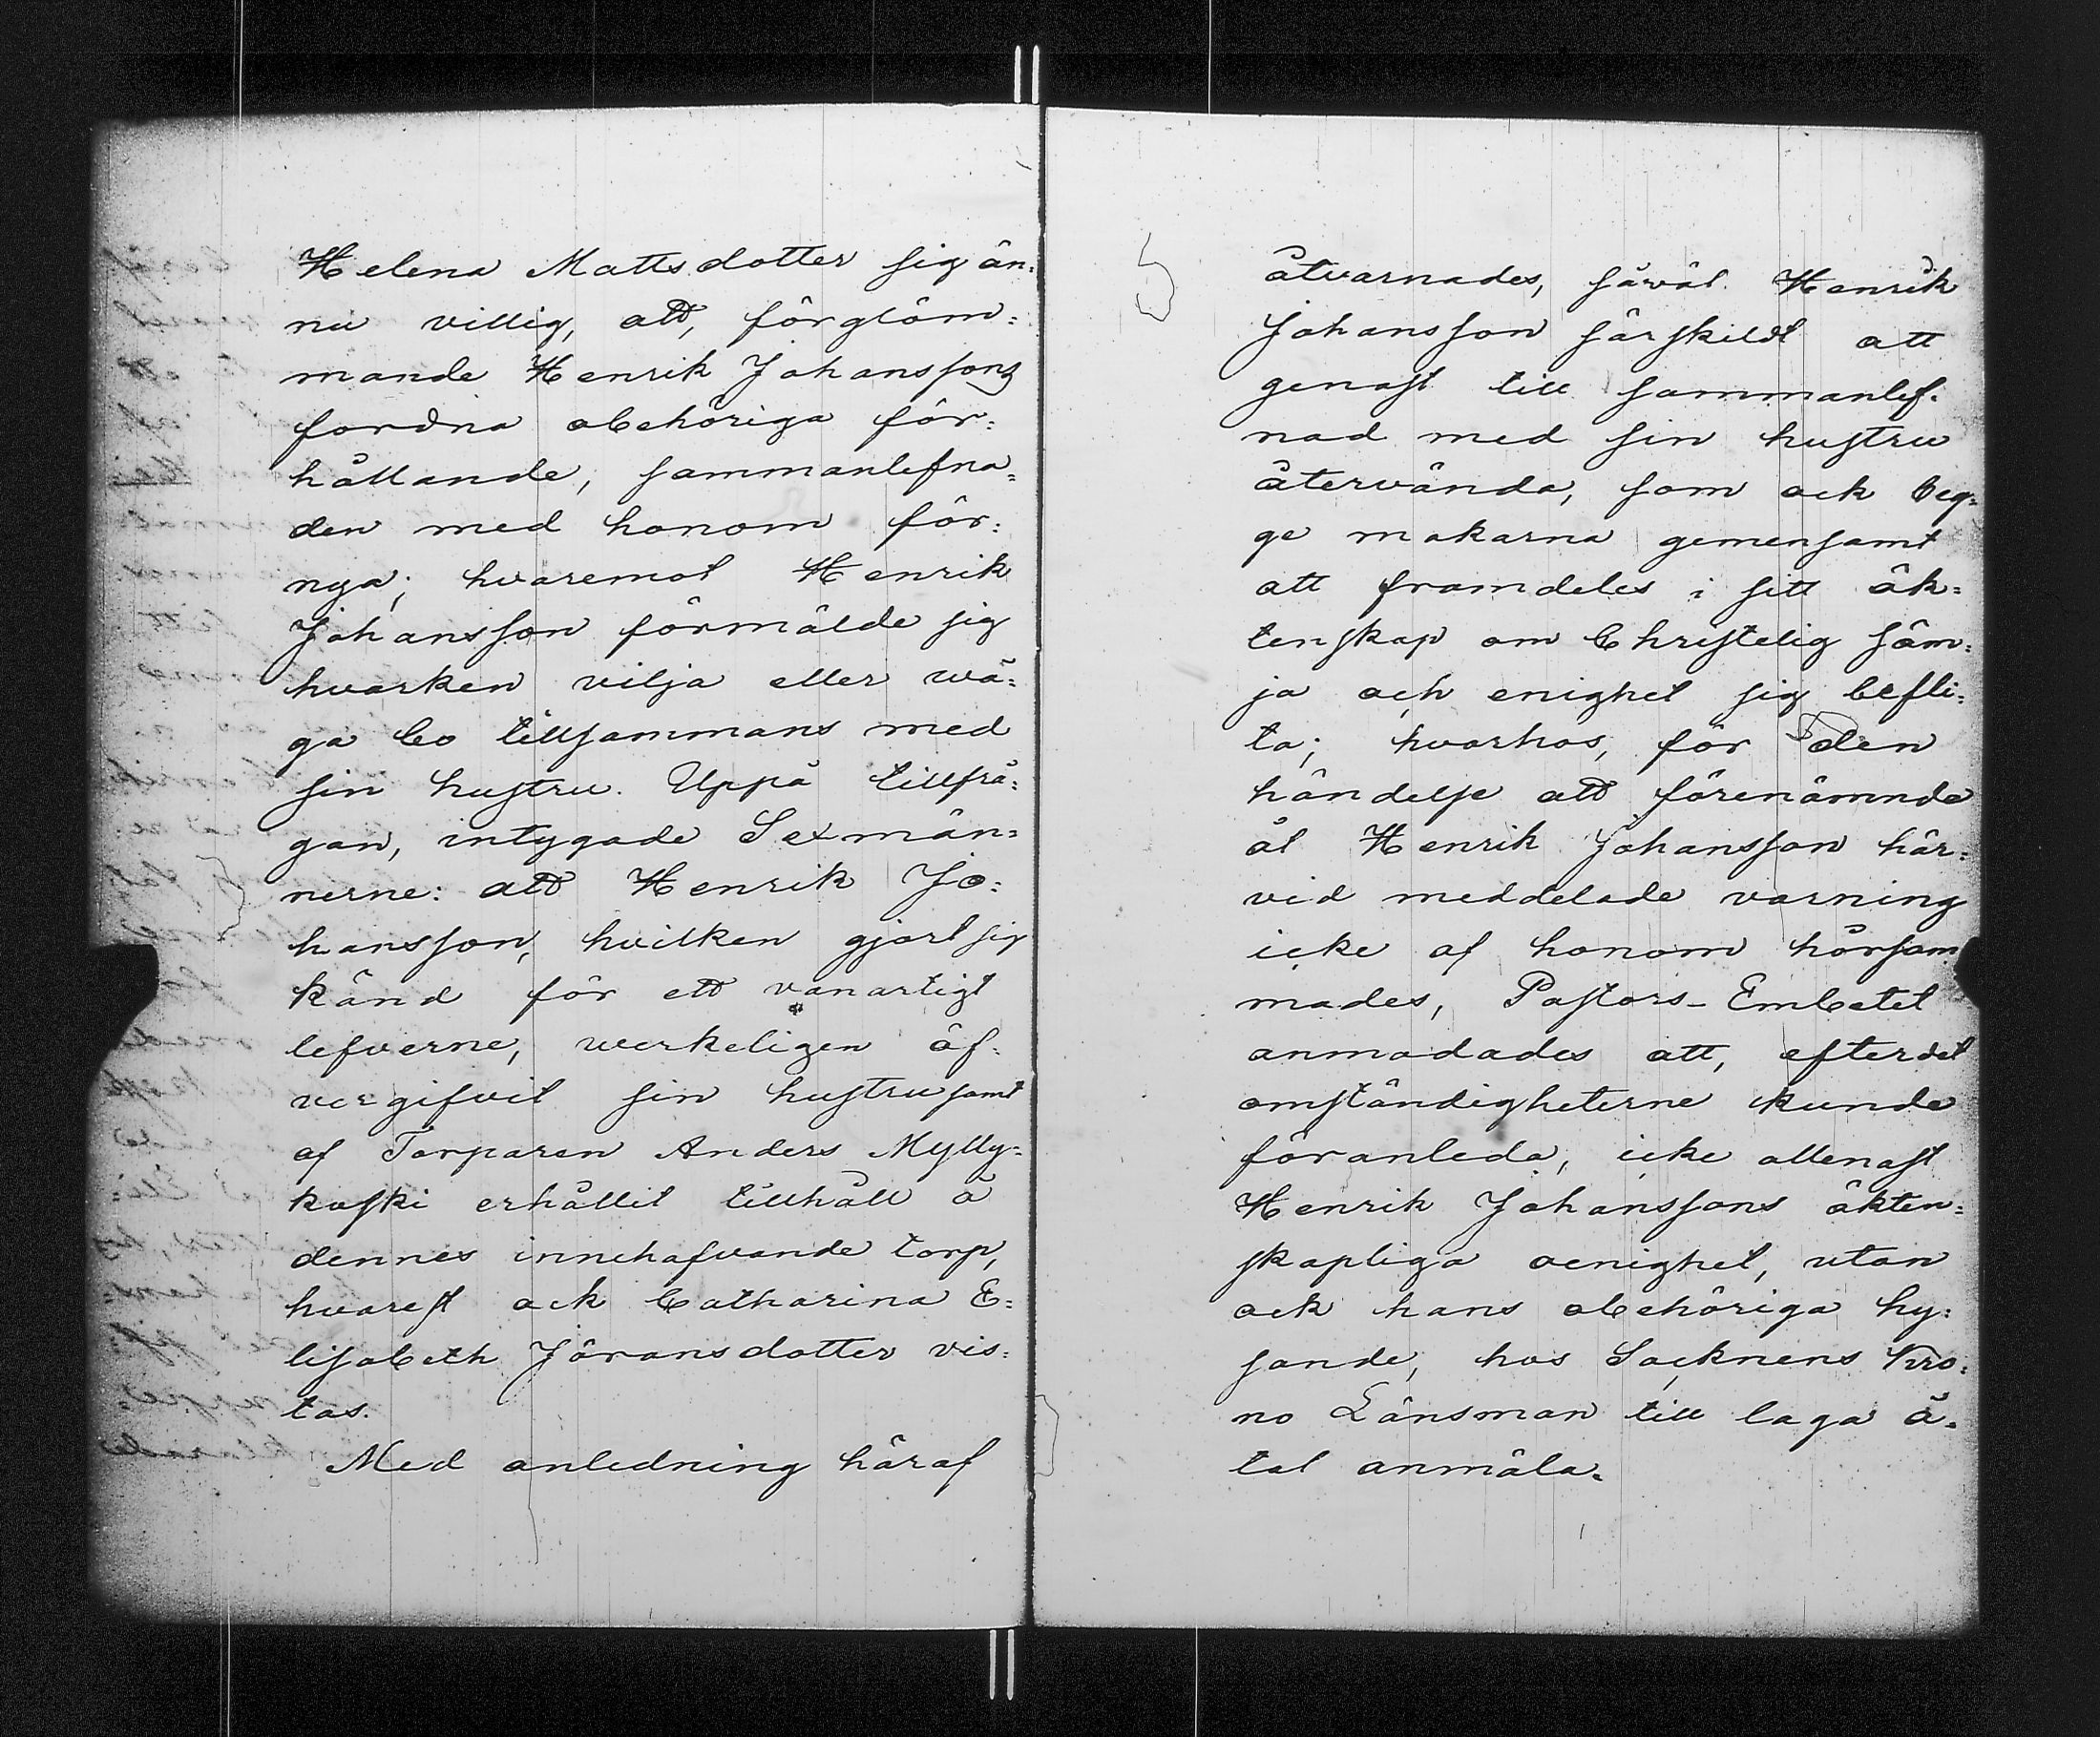 Helena Mattsdotter sig än=
nu villig, att, förglöm=
mande Henrik Johanssons
fordna obehöriga för=
hållande, sammanlefna=
den med honom för=
nya; hvaremot Henrik
Johansson förmälde sig
hvarken vilja eller wå=
ga bo tillsammans med
sin hustru. Uppå tillfrå=
gan, intygade Sexmän=
nerne: att Henrik Jo=
hansson, hvilken gjort sig
känd för ett vanartigt
lefverne, werkeligen öf=
vergifvit sin hustru samt
af Torparen Anders Mylly=
koski erhållit tillhåll å
dennes innehafvande torp,
hvarest ock Catharina E=
lisabeth Jöransdotter vis=
tas.
Med anledning häraf
åtvarnades, såväl Henrik
Johansson särskildt att
genast till sammanlef=
nad med sin hustru
återvända, som ock beg=
ge makarna gemensamt
att framdeles i sitt äk=
tenskap om Christelig säm=
ja och enighet sig befli=
ta; hvarhos, för den
händelse att förenämnde
åt Henrik Johansson här=
vid meddelade varning
icke af honom hörsam
mades, Pastors-Embetet
anmodades att, efter det
omständigheterne kunde
föranleda, icke allenast
Henrik Johanssons äkten=
skapliga oenighet, utan
ock hans obehöriga hy=
sande, hos Socknens Kro=
no Länsman till laga å=
tal anmäla.